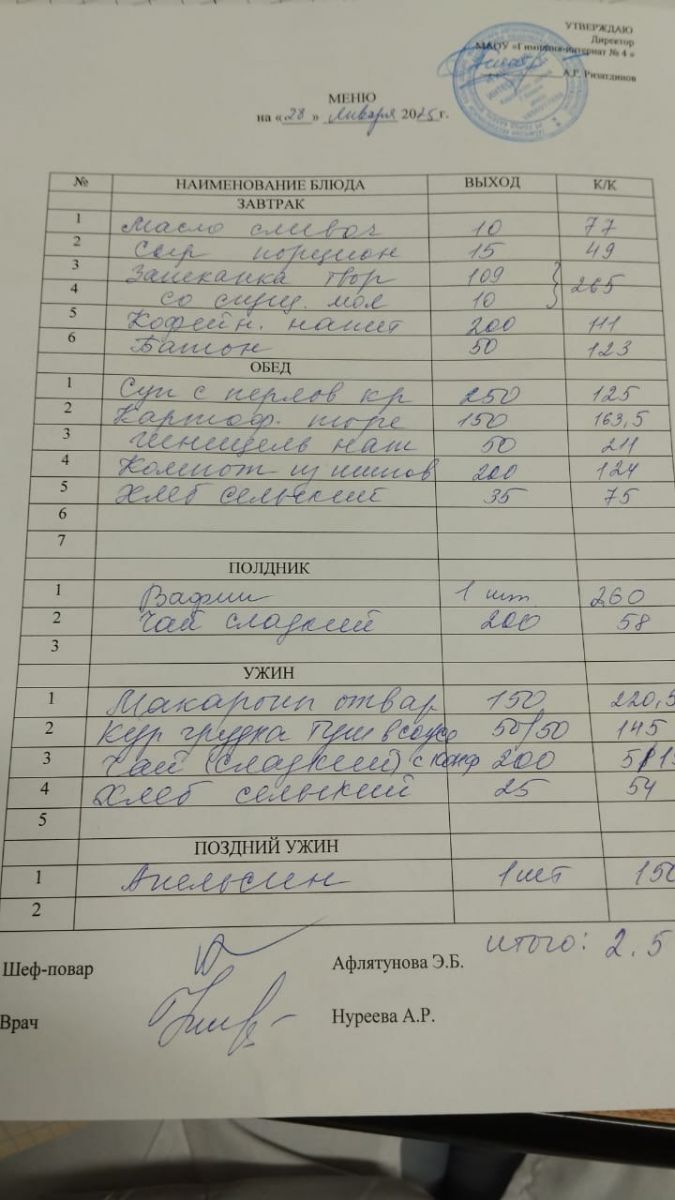 УТВЕРЖДАЮ
Директор
МАОУ «Гимназия-интернат № 4»
А.Г. Ризатдинов
МЕНЮ
на «28» января 2025 г.
№ НАИМЕНОВАНИЕ БЛЮДА ВЫХОД К/К
ЗАВТРАК
1 Масло сливоч 10 77
2 Сыр порцион 15 49
3 Запеканка твор 109
4 со сгущ. мол 10 265
5 Кофейн. напит 200 111
6 Батон 50 123
ОБЕД
1 Суп с перлов кр 250 125
2 Картоф. пюре 150 163,5
3 Шницель нат 50 211
4 Компот из 200 124
5 Хлеб сельский 35 75
6
7
ПОЛДНИК
1 Вафли 1 шт. 260
2 Чай сладкий 200 58
3
УЖИН
1 Макароны отвар 150 220,5
2 Кур грудка туш в соусе 50/50 145
3 Чай (сладкий) с конф 200
4 Хлеб сельский 25 54
5
ПОЗДНИЙ УЖИН
1 Апельсин 1 шт 150
2
итого: 2.5
Шеф-повар Афлятунова Э.Б.
Врач Нуреева А.Р.